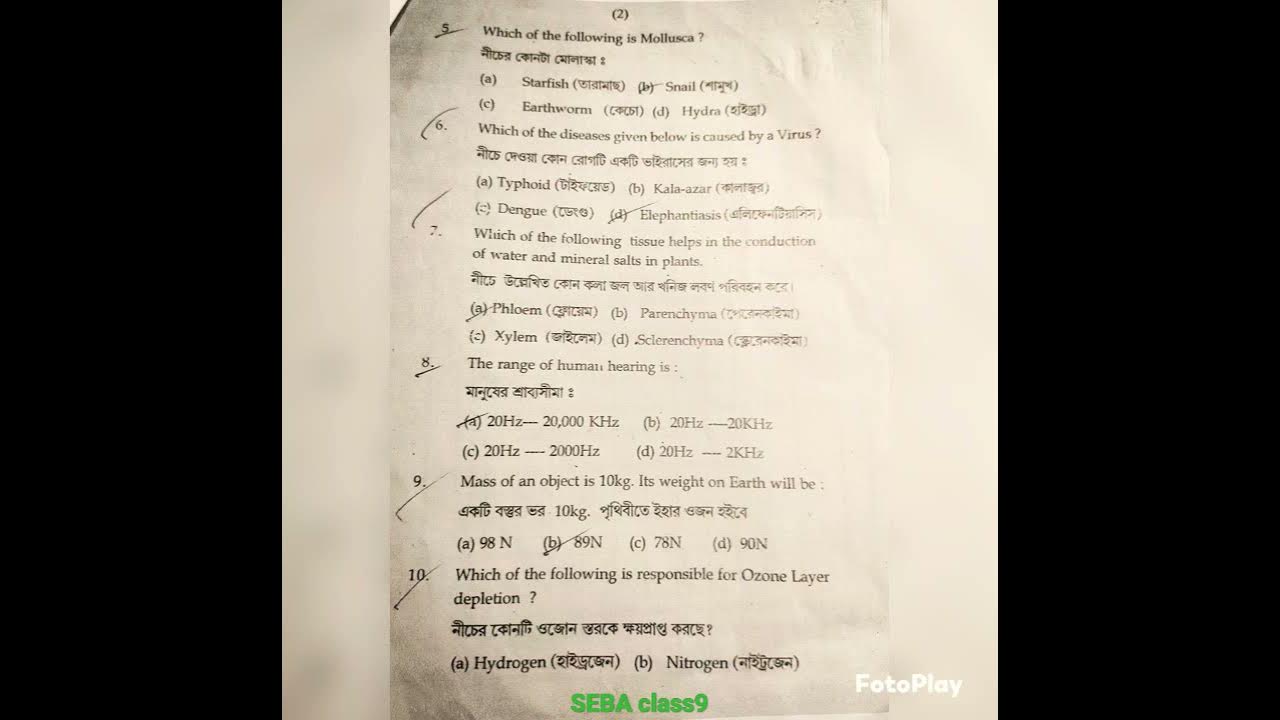 (2)
5. Which of the following is Mollusca ?
নীচের কোনটা মোলাস্কা ঃ
(a) Starfish (তারামাছ) (b) Snail (শামুখ)
(c) Earthworm (কেচো) (d) Hydra (হাইড্রা)
6. Which of the diseases given below is caused by a Virus ?
নীচে দেওয়া কোন রোগটি একটি ভাইরাসের জন্য হয় ঃ
(a) Typhoid (টাইফয়েড) (b) Kala-azar (কালাজ্বর)
(c) Dengue (ডেংগু) (d) Elephantiasis (এলিফেনটিয়াসিস)
7. Which of the following tissue helps in the conduction
of water and mineral salts in plants.
নীচে উল্লেখিত কোন কলা জল আর খনিজ লবণ পরিবহন করে।
(a) Phloem (ফ্লোয়েম) (b) Parenchyma (পেরেনকাইমা)
(c) Xylem (জাইলেম) (d) Sclerenchyma (স্ক্লেরেনকাইমা)
8. The range of human hearing is :
মানুষের শ্রাব্যসীমা ঃ
(a) 20Hz— 20,000 KHz (b) 20Hz —20KHz
(c) 20Hz — 2000Hz (d) 20Hz — 2KHz
9. Mass of an object is 10kg. Its weight on Earth will be :
একটি বস্তুর ভর 10kg. পৃথিবীতে ইহার ওজন হইবে
(a) 98 N (b) 89N (c) 78N (d) 90N
10. Which of the following is responsible for Ozone Layer
depletion ?
নীচের কোনটি ওজোন স্তরকে ক্ষয়প্রাপ্ত করছে?
(a) Hydrogen (হাইড্রজেন) (b) Nitrogen (নাইট্রজেন)
FotoPlay
SEBA class9